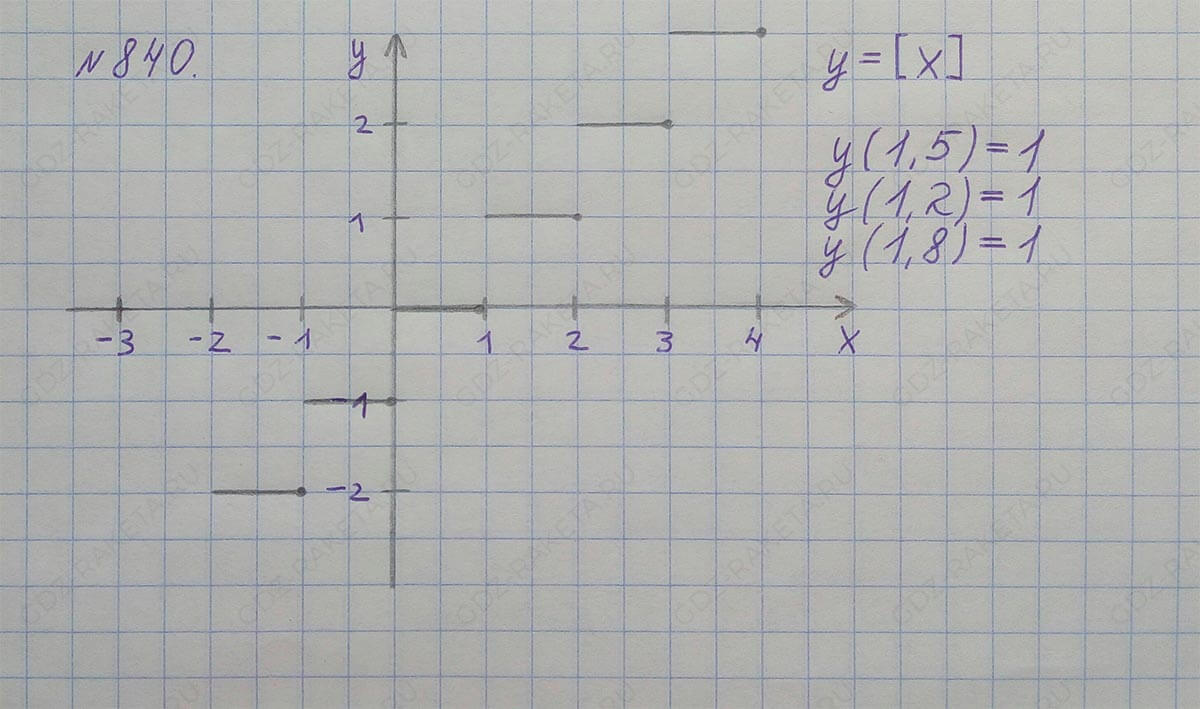 № 840.
y
y = [x]
2
y(1,5) = 1
y(1,2) = 1
1
y(1,8) = 1
-3 -2 -1 1 2 3 4 x
-1
-2
GDZ-RAKETA.RU